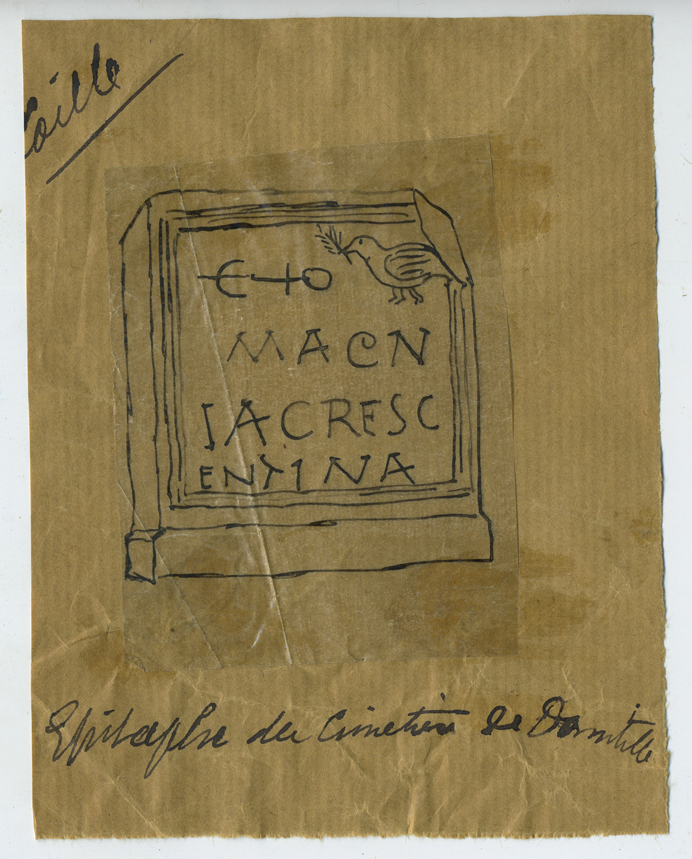 MACN
IACRESC
ENTINA
Epitaphe du Cimetière de Domitille